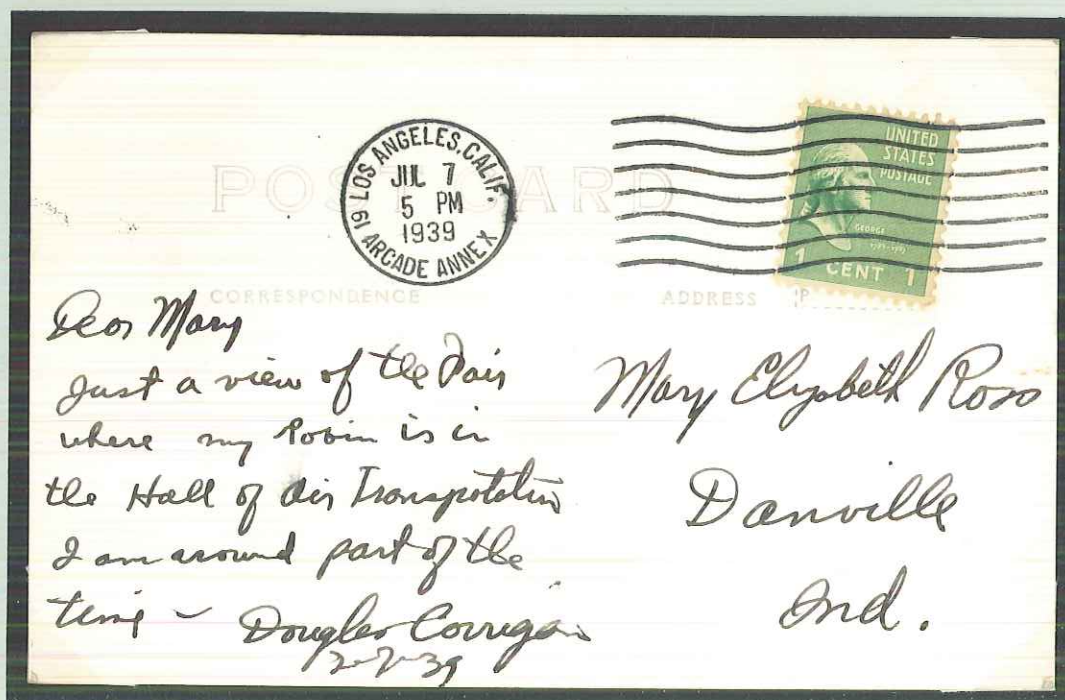 POST CARD
LOS ANGELES, CALIF.
JUL 7
5 PM
1939
19 ARCADE ANNEX
UNITED
STATES
POSTAGE
GEORGE
1 CENT 1
CORRESPONDENCE
ADDRESS
Dear Mary
Just a view of the Fair
where my Robin is in
the Hall of Air Transpotation
I am around part of the
time - Douglas Corrigan
Mary Elizabeth Ross
Danville
Ind.